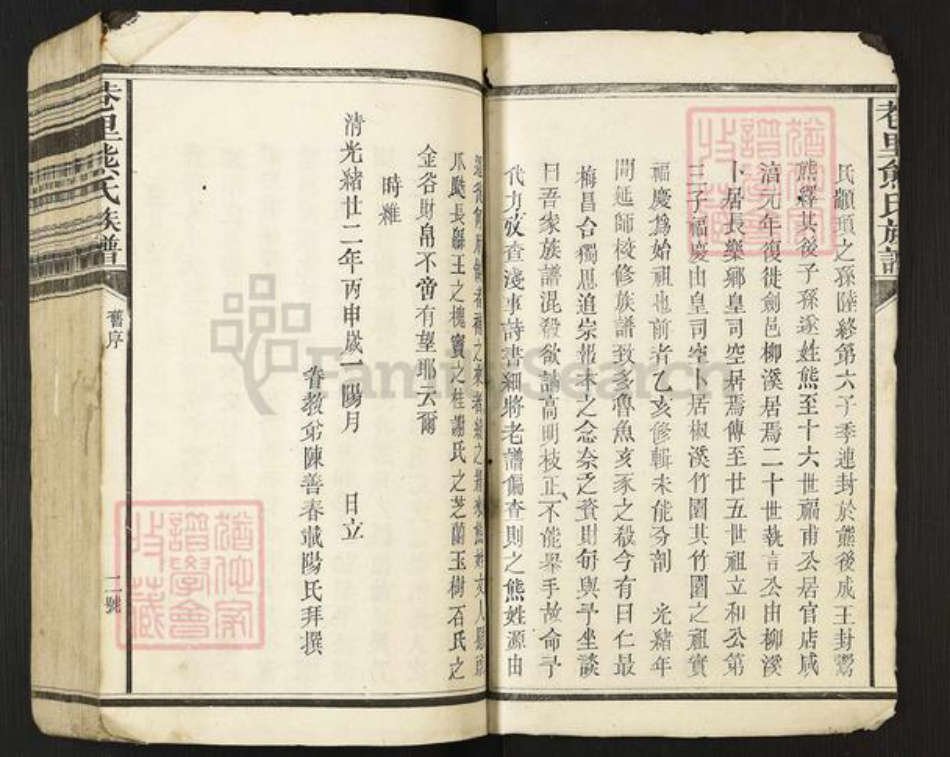 巷里熊氏族譜
氏顓頊之孫陸終第六子季連封於熊後成王封鬻
熊繹其後子孫遂姓熊至十六世福甫公居官店咸
淯元年復徙劍邑柳溪居焉二十世執言公由柳溪
卜居長樂鄉皇司空居焉傳至廿五世祖立和公第
三子福慶由皇司空卜居椒溪竹園其竹園之祖實
福慶為始祖也前者乙亥修輯未能分剖 光緒年
間延師校修族譜致多魯魚亥豕之殺今有日仁最
梅昌台獨思追崇報本之念奈乏資財每與予坐談
曰吾家族譜混殽欲論高明枝正不能舉手故命予
代力攷查淺事詩書細將老譜偏查則之熊姓源由
爪颩長緜王之槐竇之桂謝氏之芝蘭玉樹石氏之
金谷財帛不啻有望耶云爾
時維
清光緒廿二年丙申歲一陽月 日立
眷教弟陳善春載陽氏拜撰
巷里熊氏族譜
舊序
二號
猶他家譜學會收藏
猶他家譜學會收藏
FamilySearch